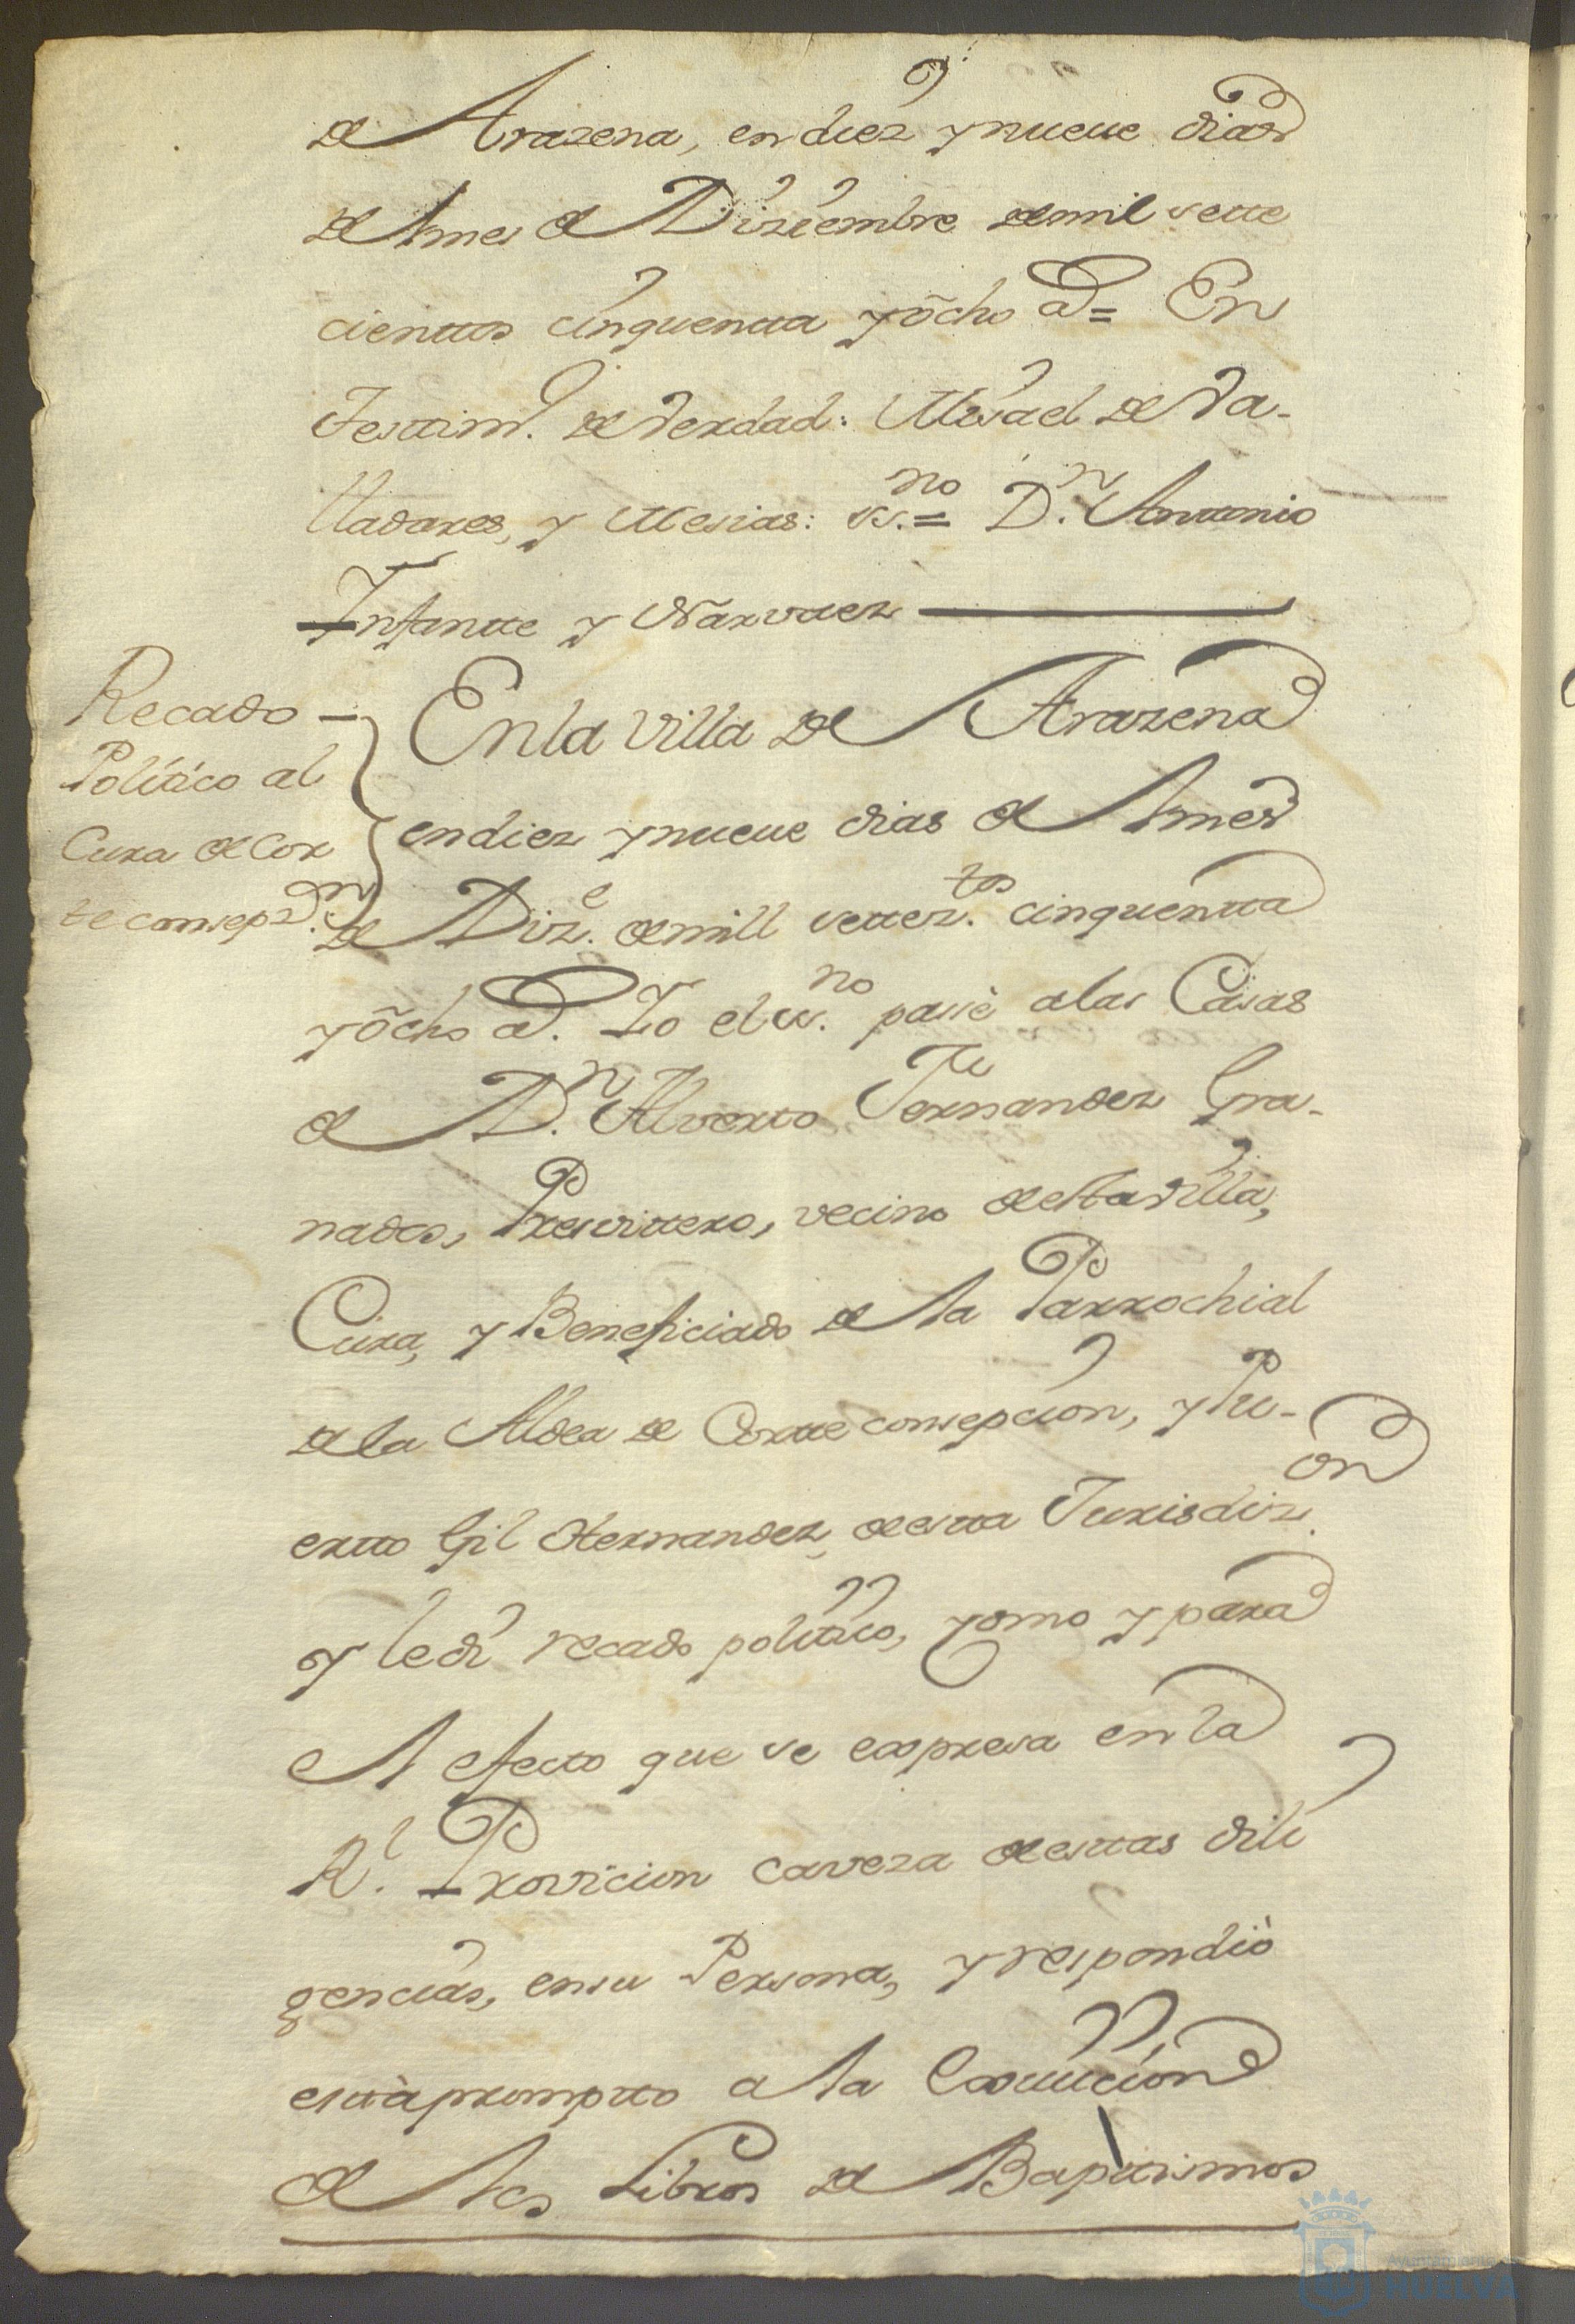 de Arazena, en diez y nueue dias
del mes de Diziembre de mil sette
cienttos cinquentta y ôcho a.s = En
Testtim.o de Verdad: Misael de Va-
lladares, y Mesias: ss.no = D.n Antonio
Infantte y Narvaez
Recado
Politico al
Cura de Cor
te consepz.on
En la Villa de Arazena
en diez y nueue dias del mes
de Diz.e de mill settez.tos cinquentta
y ôcho a.s Yo el ss.no passè a las Casas
de D.n Alvertto Fernandez Gra-
nados, Presvittero, vecino de estta Villa,
Cura, y Beneficiado de la Parrochial
de la Aldea de Cortte consepcion, y Pu-
ertto Gil Hernandez de estta Jurisdiz.on
y le di recado politico, como y para
el efecto que se expresa en la
R.l Provicion caveza de esttas dili
gencias, en su Persona, y respondiò
esttà promptto a la Exivicion
de los Libros de Bapttismos
Ayuntamiento
HUELVA